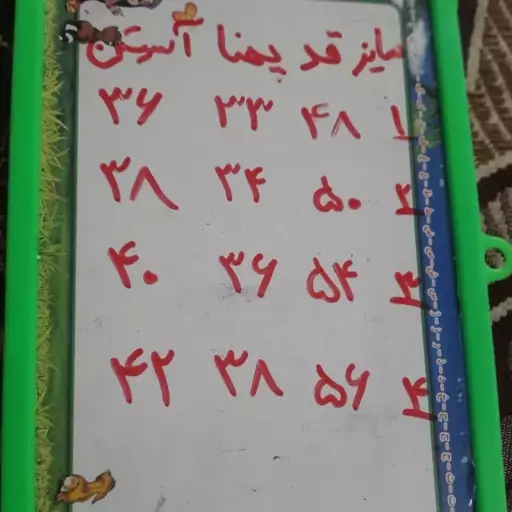 سایز قد پهنا آستین
۱ ۴۸ ۳۳ ۳۶
۲ ۵۰ ۳۴ ۳۸
۳ ۵۴ ۳۶ ۴۰
۴ ۵۶ ۳۸ ۴۲